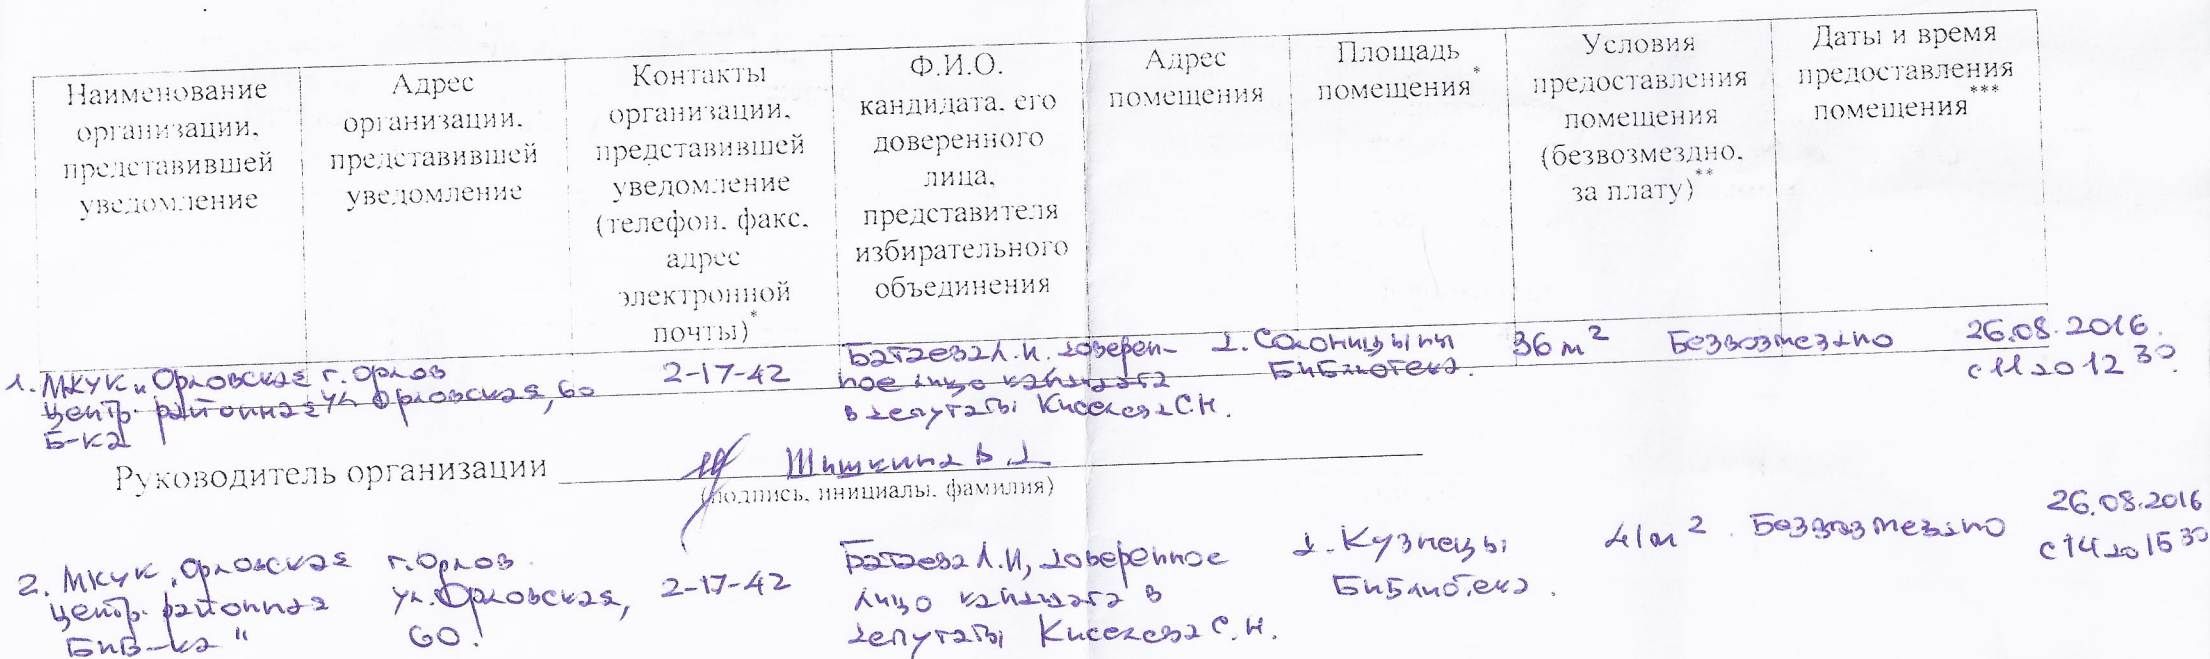 Наименование
организации,
представившей
уведомление
Адрес
организации,
представившей
уведомление
Контакты
организации,
представившей
уведомление
(телефон, факс,
адрес
электронной
почты)*
Ф.И.О.
кандидата, его
доверенного
лица,
представителя
избирательного
объединения
Адрес
помещения
Площадь
помещения*
Условия
предоставления
помещения
(безвозмездно,
за плату)**
Даты и время
предоставления
помещения***
1. МКУК "Орловская
центр. районная
Б-ка
г. Орлов
ул Орловская, 60
2-17-42
Батаева Л.И. доверен-
ное лицо кандидата
в депутаты Киселева С.Н.
д. Солоницыны
Библиотека.
36 м²
Безвозмездно
26.08.2016.
с 11 до 12 30
Руководитель организации
Шишкина В.Д
(подпись, инициалы, фамилия)
2. МКУК "Орловская
центр. районная
Биб-ка"
г. Орлов
ул. Орловская,
60.
2-17-42
Батаева Л.И, доверенное
лицо кандидата в
депутаты Киселева С.Н.
д. Кузнецы
Библиотека.
41 м².
Безвозмездно
26.08.2016
с 14 до 15 30